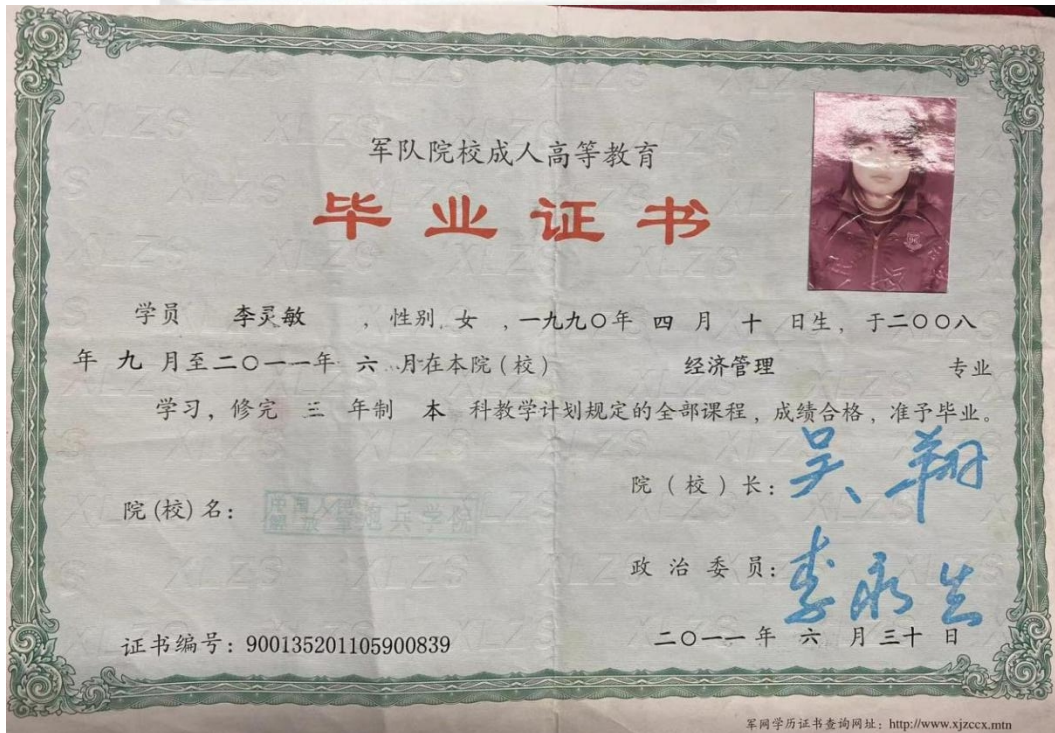 军队院校成人高等教育
毕业证书
学员 李灵敏 ，性别 女 ，一九九〇年 四 月 十 日生，于二〇〇八
年 九 月至二〇一一年 六 月在本院（校） 经济管理 专业
学习，修完 三 年制 本 科教学计划规定的全部课程，成绩合格，准予毕业。
院（校）长：吴翔
院（校）名： 炮兵学院
政治委员：李永生
证书编号：900135201105900839
二〇一一年 六 月三十 日
军网学历证书查询网址：http://www.xjzccx.mtn
XLZS